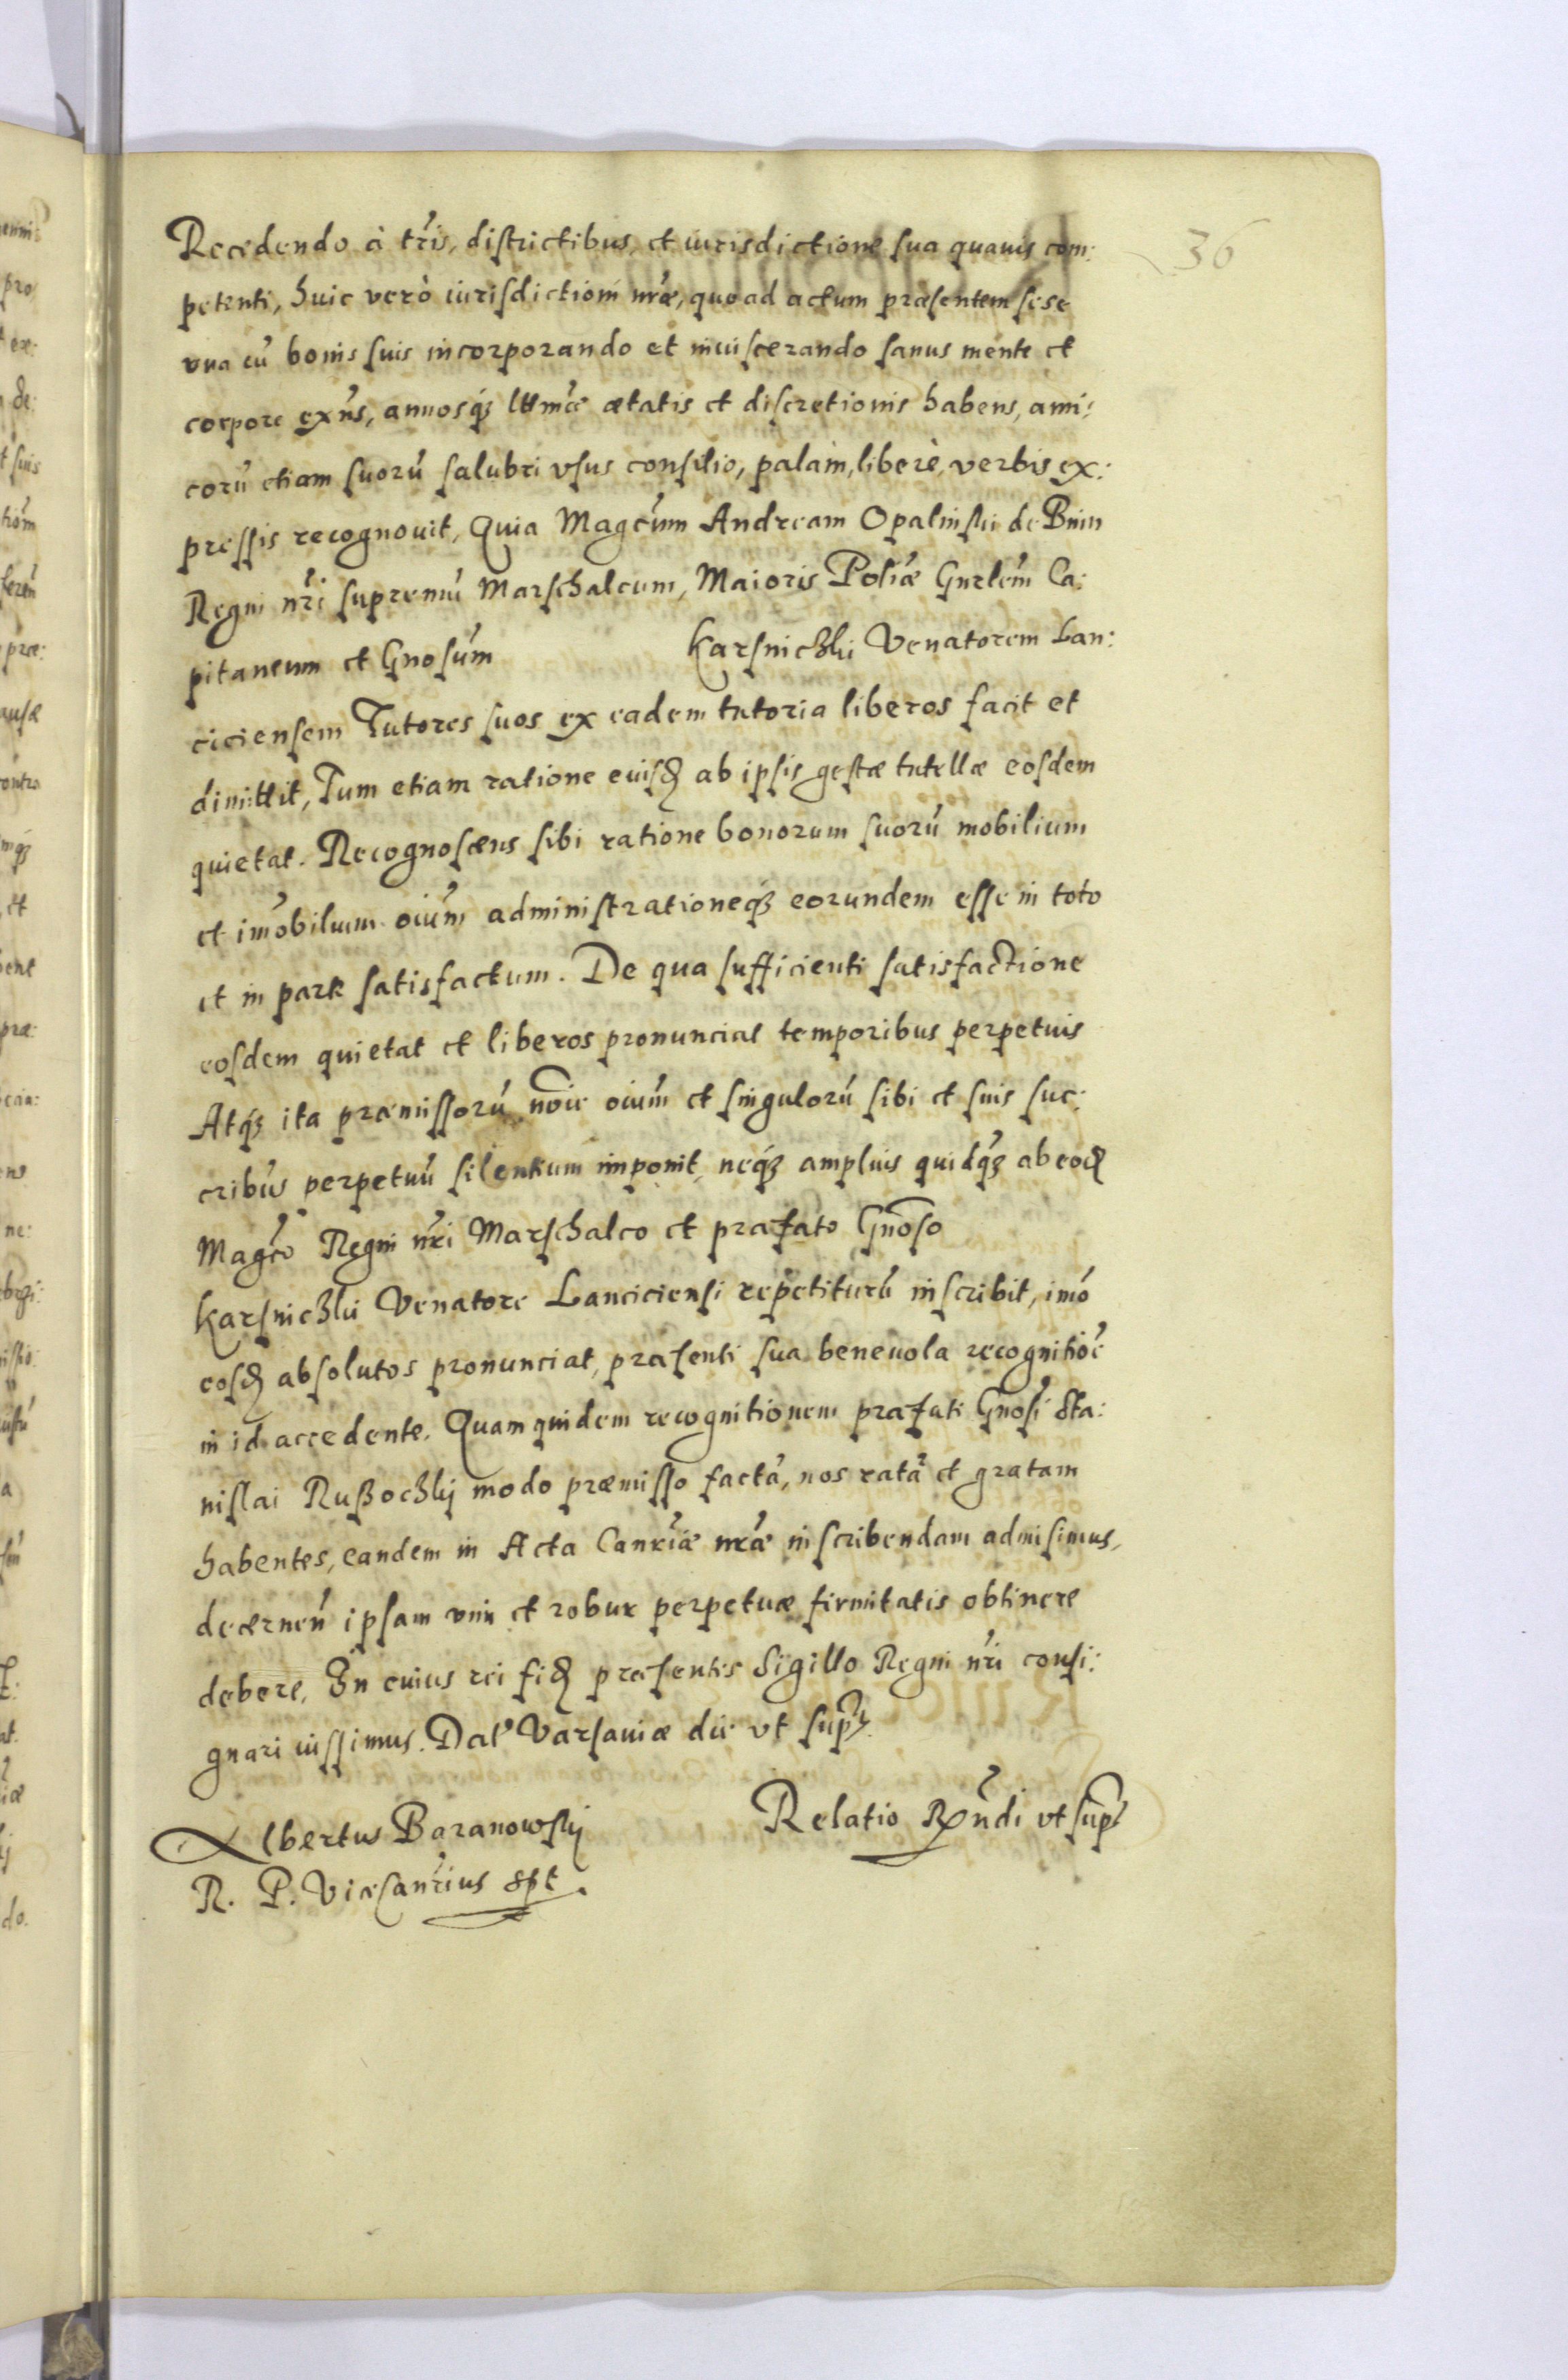 36
Recedendo à tr̃is, districtibus, et iurisdictione sua quauis com:
petenti, huic verò iurisdictioni nr̃æ, quoad actum præsentem sese
vna cũ bonis suis incorporando et inuiscerando sanus mente et
corpore exñs, annosq́ʒ lttm̃æ ætatis et discretionis habens, ami:
corũ etiam suorũ salubri vsus consilio, palàm, liberè, verbis ex:
pressis recognouit, Quia Magcũm Andream Opalinski de Bnin
Regni nr̃i supremũ Marschalcum, Maioris Poliæ Gnrlẽm Ca:
pitaneum et Gnosũm Karsniczki Venatorem Lan:
ciciensem Tutores suos ex eadem tutoria liberos facit et
dimittit, Tum etiam ratione euisd ab ipsis gestæ tutellæ eosdem
quietat. Recognoscens sibi ratione bonorum suorũ mobilium
et im̃obilium oiũm administrationeq́ʒ eorundem esse in toto
et in parte satisfactum. De qua sufficienti satisfactione
eosdem quietat et liberos pronunciat temporibus perpetuis
Atq́ʒ ita præmissorũ noĩe oiũm et singulorũ sibi et suis suc:
cribũs perpetuũ silentium imponit, neq́ʒ amplius quidq́ʒ ab eod
Magco Regni nr̃i Marschalco et præfato Gnoso
Karsniczki Venatore Lanciciensi repetiturũ inscribit, imó
eosd absolutos pronunciat, præsenti sua beneuola recognitioẽ
in id accedente. Quam quidem recognitionem præfati Gnosi Sta:
nislai Rußoczkij modo præmisso factã, nos ratã et gratam
habentes, eandem in Acta Canr̃iæ nr̃æ inscribendam admisimus,
decernen̄ ipsam vim et robur perpetuæ firmitatis obtinere
debere. In cuius rei fid præsentis Sigillo Regni nr̃i consi:
gnari iussimus. Dat' Varsauiæ die vt supr̃
Relatio Rx̃ndi vt supr̃
Albertus Baranowskij
R. P. Vicecanr̃ius spt